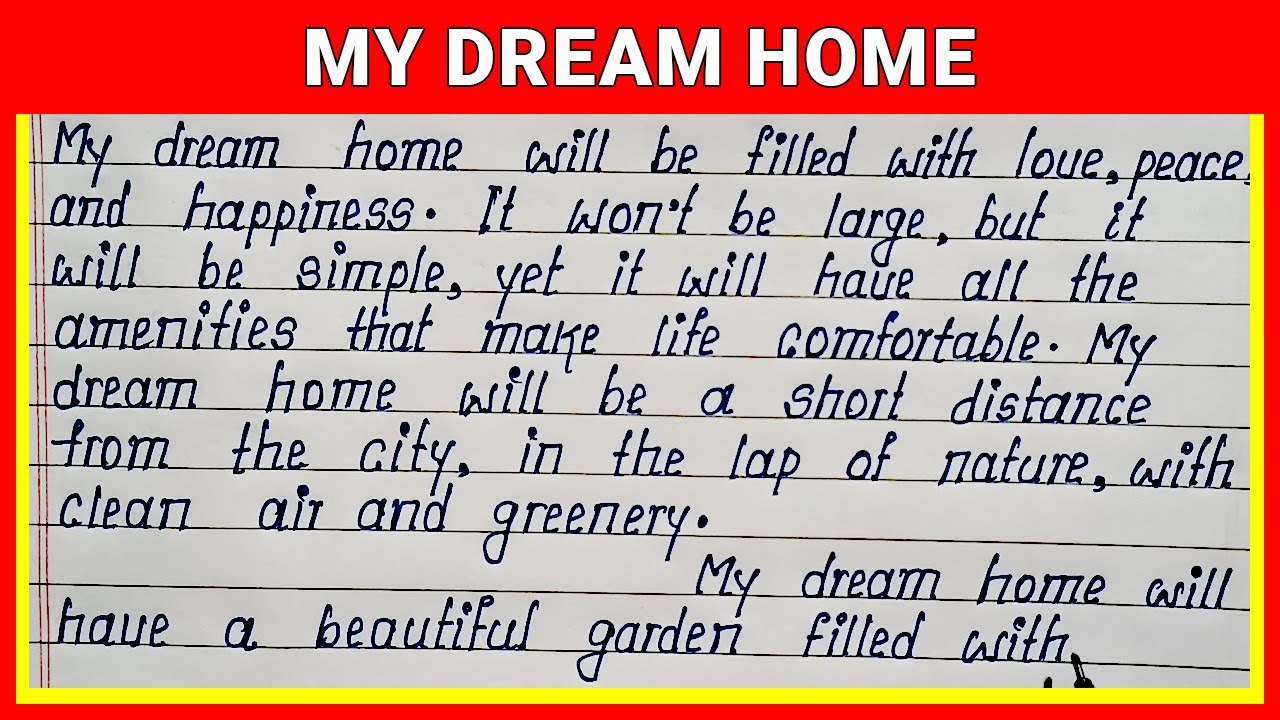 MY DREAM HOME
My dream home will be filled with love, peace,
and happiness. It won't be large, but it
will be simple, yet it will have all the
amenities that make life comfortable. My
dream home will be a short distance
from the city, in the lap of nature, with
clean air and greenery.
My dream home will
have a beautiful garden filled with